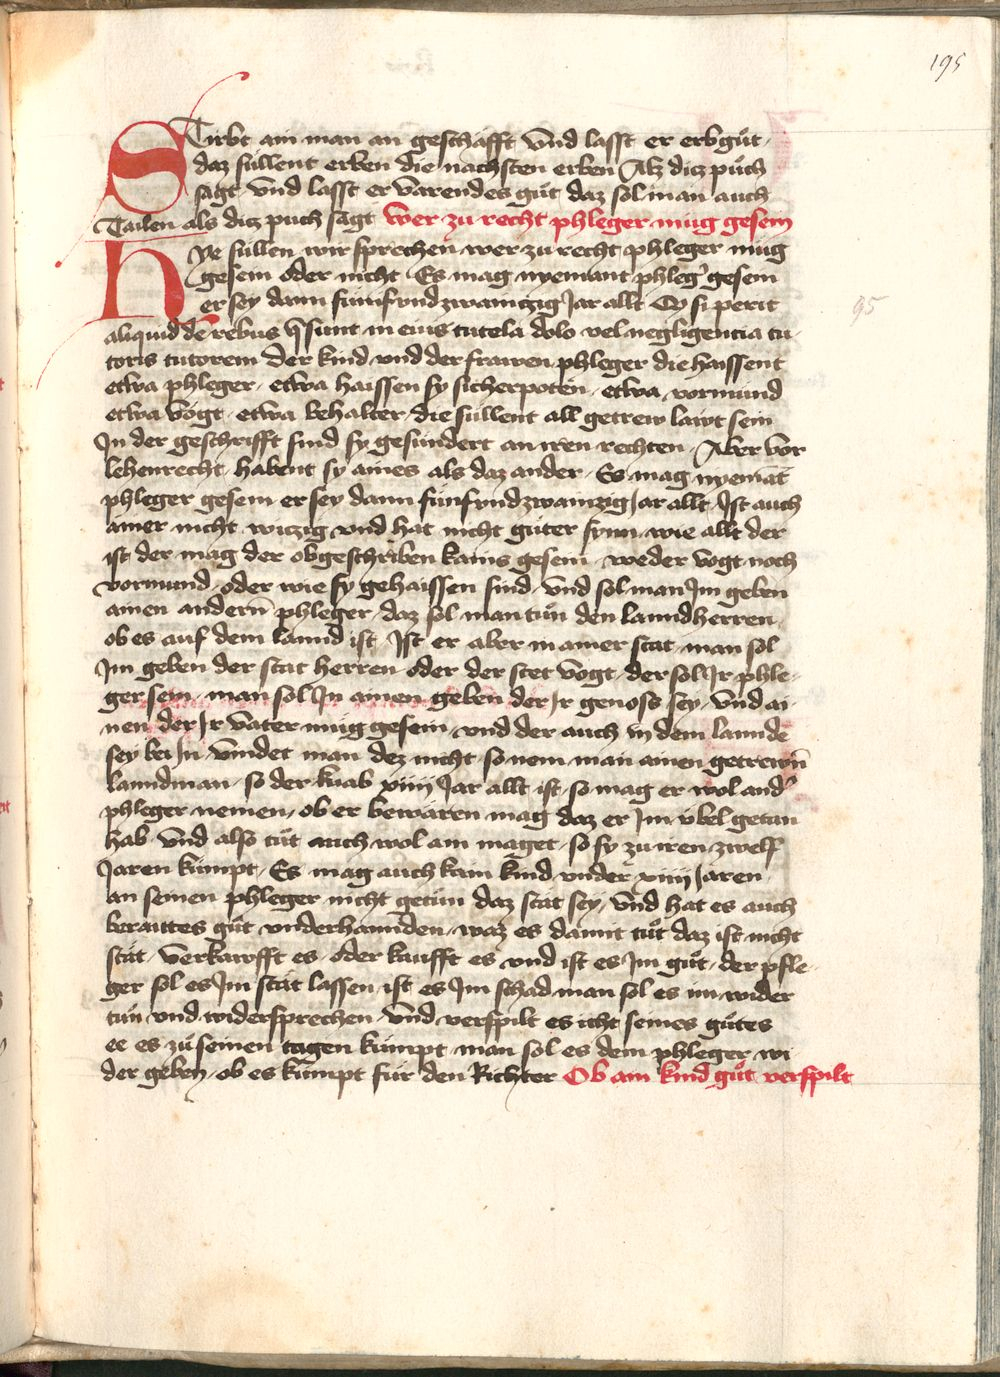 195
STirbt ain man an geschäfft vnd lasst er erbgůt ·
daz sullent erben die nachsten erben Alz dicz půch
sagt · vnd lasst er varendes gůt daz sol man auch
Tailen als dicz puch sagt wer zu recht phleger müg gesein
HYe sullen wir sprechen wer zu recht phleger müg
gesein oder nicht · Es mag nyemant phleg' gesein
er sey dann fünfvndzwainczig Jar allt · Q si perit
95
aliquid de rebus q sunt in eius tutela dolo vel negligencia tu-
toris tutorem der kind vnd der frawen phleger die haissent
etwa phleger · etwa haissen sy sicherpoten · etwa vormund
etwa vogt · etwa behalter · die sullent all getrew lawt sein
In der geschrifft sind sy gesundert an iren rechten · Aber vor
lehenrecht habent sy aines als daz ander · Es mag nyemāt
phleger gesein er sey dann fünfvndzwainzig Jar allt · Ist auch
ainer nicht witzig vnd hat nicht guter synn wie allt der
ist der mag der obgeschriben kains gesein · weder vogt noch
vormund · oder wie sy gehaissen sind · vnd sol man Im geben
ainen andern phleger · daz sol man tůn den lanndherren ·
ob es auf dem lannd ist · Ist er aber in ainer stat · man sol
Im geben der stat herren oder der stet vogt · der sol Ir phle-
ger sein · man sol In ainen geben der Ir genoss sey · vnd ai-
nen der Ir vater müg gesein · vnd der auch in dem lannde
sey bei In · vindet man dez nicht · so nem man ainen getrewn
lanndman · so der knab xiiii Jar allt ist · so mag er wol and'
phleger nemen · ob er bewären mag daz er Im übel getan
hab · vnd also tůt auch wol ain maget · so sy zu iren zwelf
Jaren kümpt · Es mag auch kain kind vnder xiiii Jaren ·
an seinen phleger nicht getün daz stät sey · vnd hat es auch
beraittes gůt vnderhannden · waz es damit tůt daz ist nicht
stät · verkawfft es · oder kaufft es vnd ist es Im gůt · der pfle-
ger sol es Im stät lassen · ist es Im schad man sol es im wider
tůn vnd widersprechen · vnd verspilt es icht seines gůtes
ee es zů seinen tagen kümpt · man sol es dem phleger wi-
der geben · ob es kümpt für den Richter Ob ain kind gůt verspilt